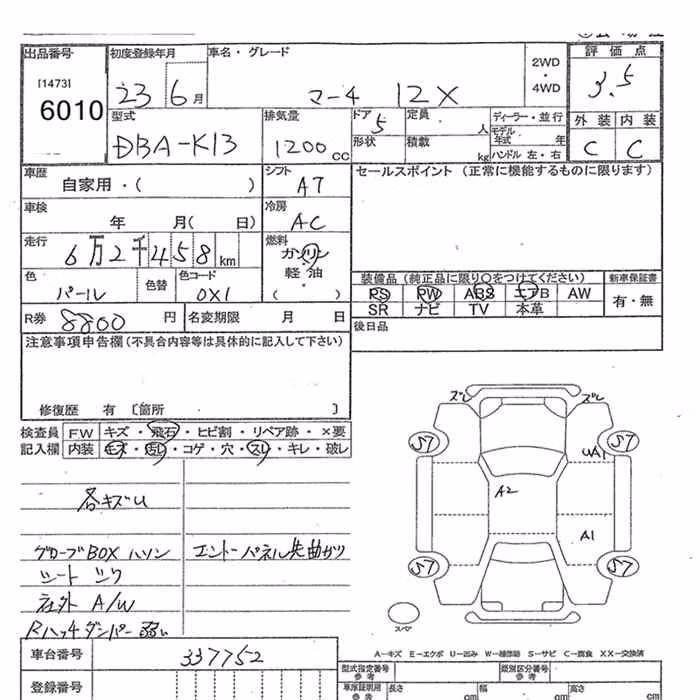 出品番号 初度登録年月 車名・グレード 2WD・4WD 評価点
[1473] 6010 23 6月 マーチ 12X 3.5
型式 DBA-K13 排気量 1200cc ドア 5 定員 人 ディーラー・並行 外装 内装
形状 積載 kg モデル年式 年 ハンドル 左・右 C C
車歴 自家用・( ) シフト AT セールスポイント (正常に機能するものに限ります)
車検 年 月( 日) 冷房 AC
走行 6万2千458km 燃料 ガソリン・軽油・( )
色 パール 色替 色コード QX1 装備品 (純正品に限り○をつけてください) 新車保証書
PS PW ABS エアB AW 有・無
SR ナビ TV 本革
R券 8800円 名変期限 月 日 後日品
注意事項申告欄 (不具合内容等は具体的に記入して下さい)
修復歴 有 〔箇所 〕
検査員 FW キズ・飛石・ヒビ割・リペア跡・×要
記入欄 内装 キズ・汚レ・コゲ・穴・スレ・キレ・破レ
ズレ ズレ
57 57
UA1
各キズU A2
A1
グローブBOX ハソン
シート シワ 57 57
社外 A/W
Rハッチダンパー 弱い スペア
A-キズ E-エクボ U-凹み W-補修跡 S-サビ C-腐食 XX-交換済
車台番号 337752 型式指定番号 参考 類別区分番号 参考
登録番号 車庫証明用 参考 長さ cm 幅 cm 高さ cm